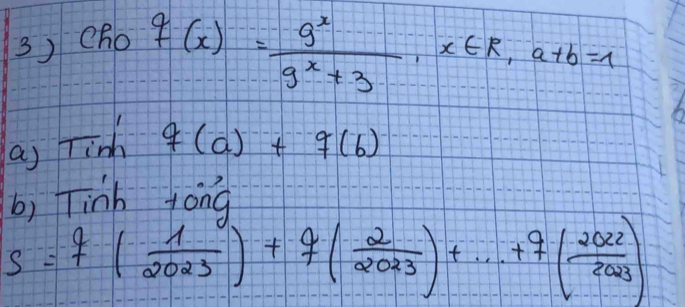 3) Cho f(x) = \frac{9^x}{9^x + 3}, x ∈ R, a+b=1
a) Tính f(a) + f(b)
b) Tính tổng
S = f(\frac{1}{2023}) + f(\frac{2}{2023}) + ... + f(\frac{2022}{2023})